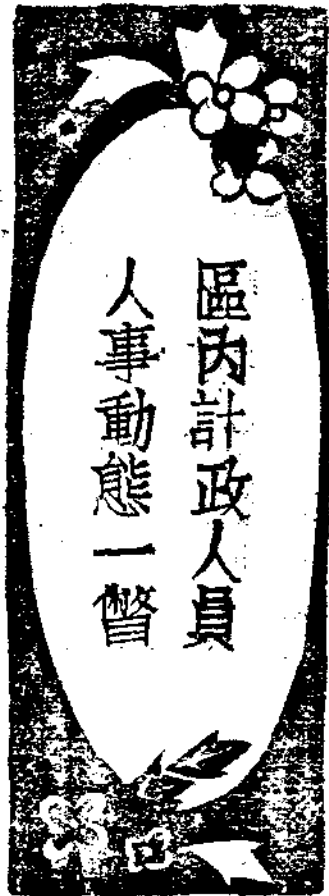 區内計政人員
人事動態一瞥